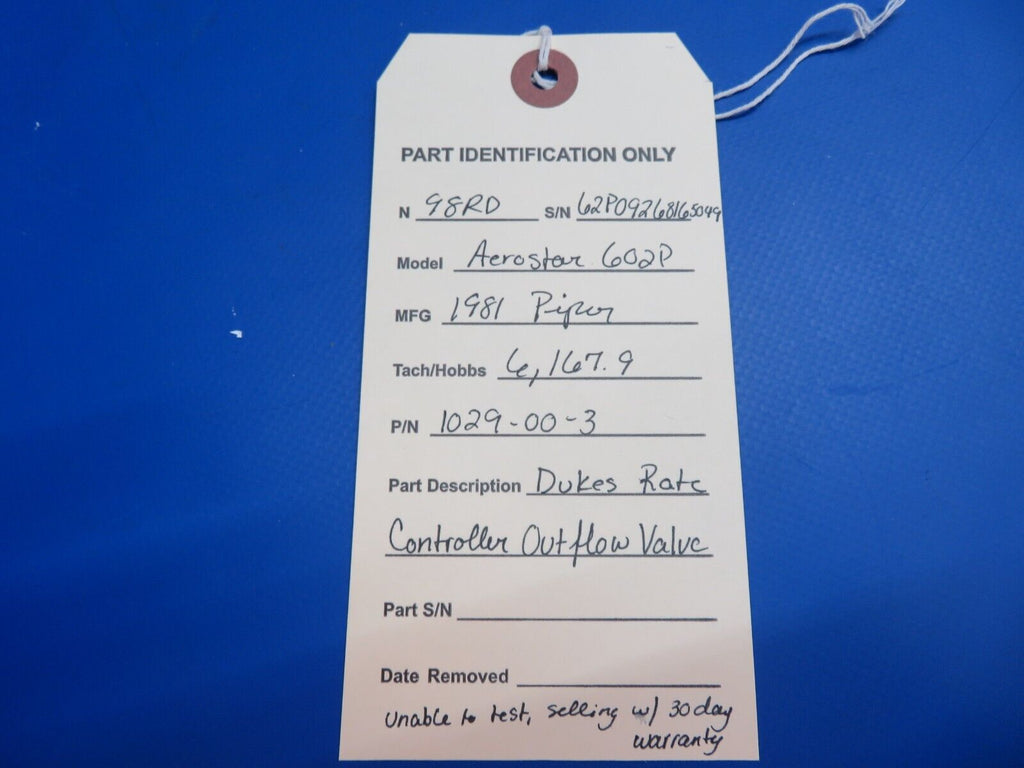 PART IDENTIFICATION ONLY
N 98RD S/N 62P09268165049
Model Aerostar 602P
MFG 1981 Piper
Tach/Hobbs 6,167.9
P/N 1029-00-3
Part Description Dukes Rate
Controller Outflow Valve
Part S/N
Date Removed
unable to test, selling w/ 30 day
warranty